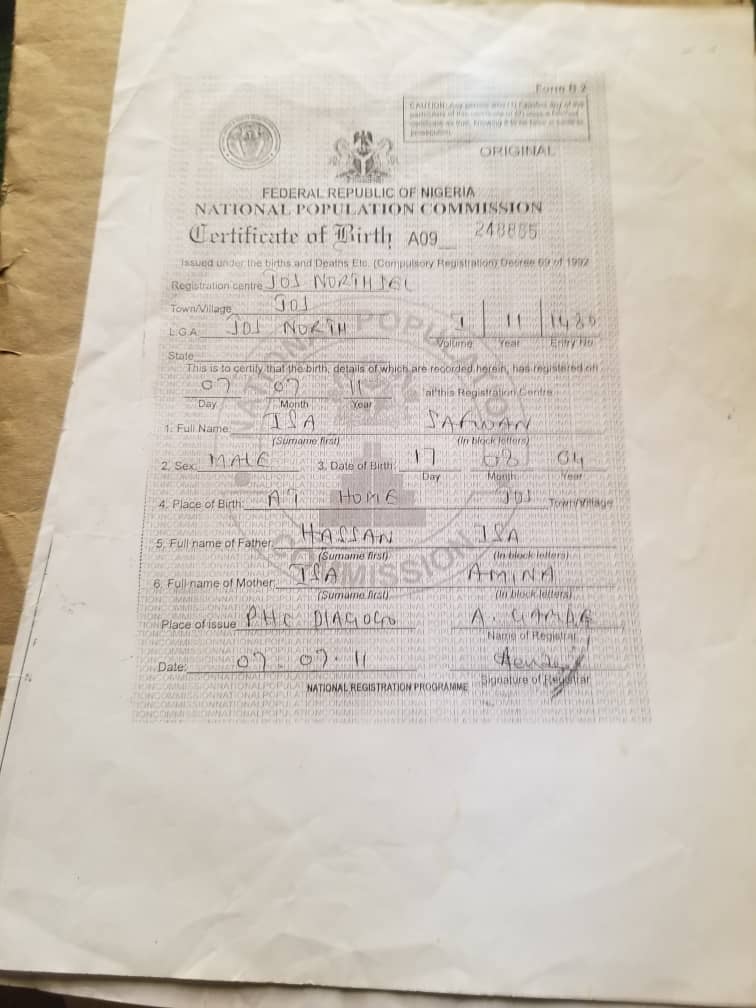 Form B 2
CAUTION: Any person who (1) Falsifies any of the
particulars of this certificate or (2) uses a falsified
certificate as true, knowing it to be false is liable to
prosecution.
ORIGINAL
FEDERAL REPUBLIC OF NIGERIA
NATIONAL POPULATION COMMISSION
Certificate of Birth A09 248865
Issued under the births and Deaths Etc. (Compulsory Registration) Decree 69 of 1992
Registration centre JOS NORTH
Town/Village JOS
L.G.A. JOS NORTH 1 11 1480
Volume Year Entry No
State
This is to certify that the birth, details of which are recorded herein, has registered on
07 07 11 at this Registration Centre
Day Month Year
1. Full Name: ISA SAFWAN
(Surname first) (In block letters)
2. Sex: MALE 3. Date of Birth: 17 03 04
Day Month Year
4. Place of Birth: AT HOME JOS Town/Village
5. Full name of Father: HASSAN ISA
(Surname first) (In block letters)
6. Full name of Mother: ISA AMINA
(Surname first) (In block letters)
Place of issue PHC A.
Name of Registrar
Date: 07.07.11
Signature of Registrar
NATIONAL REGISTRATION PROGRAMME
NATIONAL POPULATION COMMISSION